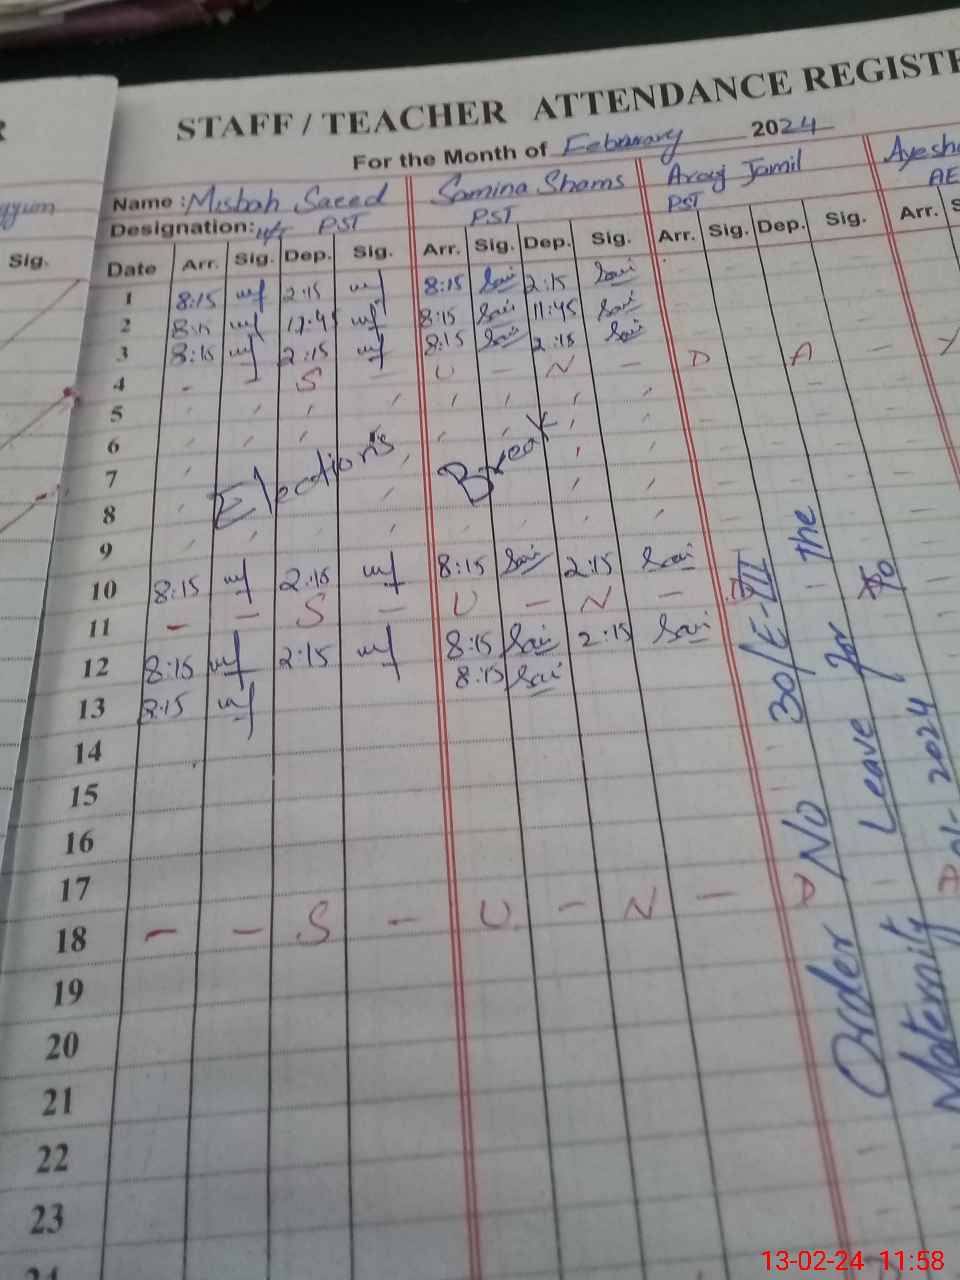 STAFF / TEACHER ATTENDANCE REGISTE
For the Month of February 2024
Name : Misbah Saeed Samina Shams Arooj Jamil Ayesha
Designation: PST PST PST AE
Sig. Date Arr. Sig. Dep. Sig. Arr. Sig. Dep. Sig. Arr. Sig. Dep. Sig. Arr.
1 8:15 2:15 8:15 Sai 2:15 Sai
2 8:15 11:45 8:15 Sai 11:45 Sai
3 8:15 2:15 8:15 Sai 2:15 Sai
4 - - S - U - N - D A - Y
5
6
7 Elections Break
8
9
10 8:15 2:15 8:15 Sai 2:15 Sai
11 - - S - U - N -
12 8:15 2:15 8:15 Sai 2:15 Sai
13 8:15 8:15 Sai
14
15
16
17
18 - - S - U - N - D A
19
20
21
22
23
24
Order No 30/E-III the
Maternity Leave for
2024
13-02-24 11:58